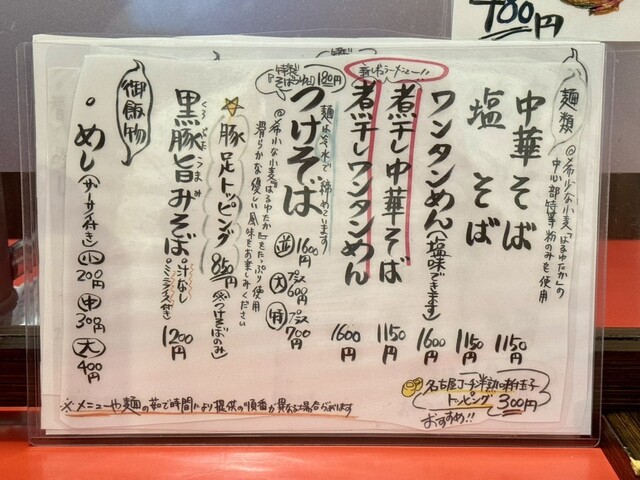 700円
麺類
◎希少な小麦「はるゆたか」の
中心部特等粉のみを使用
中華そば 1150円
塩そば 1150円
ワンタンめん(塩味できます) 1600円
新しいラーメンメニュー!!
煮干し中華そば 1150円
煮干しワンタンめん 1600円
麺は冷水で締めています
つけそば
並 1600円
大 プラス600円
特 プラス700円
◎希少な小麦「はるゆたか」をたっぷり使用
滑らかな優しい風味をお楽しみください
☆豚足トッピング 850円
(※つけそばのみ)
黒豚旨みそば
くろぶた うまみ
・汁なし
1200円
御飯物
・めし(ザーサイ付き)
小 200円
中 300円
大 400円
名古屋コーチン半熟味付玉子
トッピング 300円
おすすめ!!
※メニューや麺の茹で時間により提供の順番が異なる場合があります